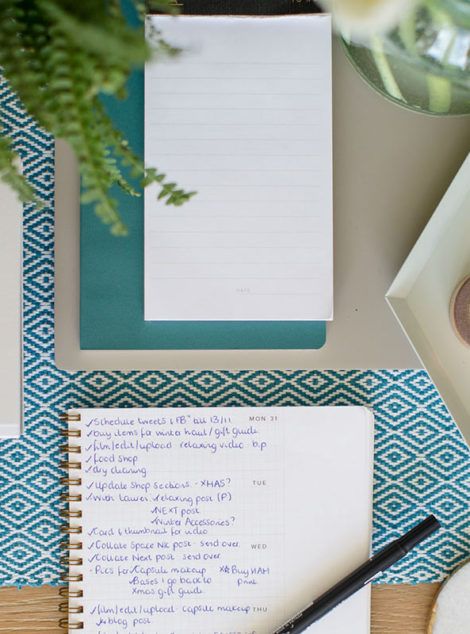 DATE
MON 31
✓Schedule tweets & FB" till 13/11
✓buy items for winter haul/gift guide
✓film/edit/upload relaxing video b.p
✓food shop
✓dry cleaning
TUE
✓Update shop sections - XMAS?
✓With Lauren: relaxing post (P)
✓NEXT post
✓Winter Accessories?
✓Card & thumbnail for video
WED
✓Collate Space NK post - send over
✓Collate Next post - send over
- Pics for ✓Capsule makeup
✓Bases I go back to
Xmas gift guide
✓Buy H&M
print
THU
✓film/edit/upload capsule makeup
✓blog post